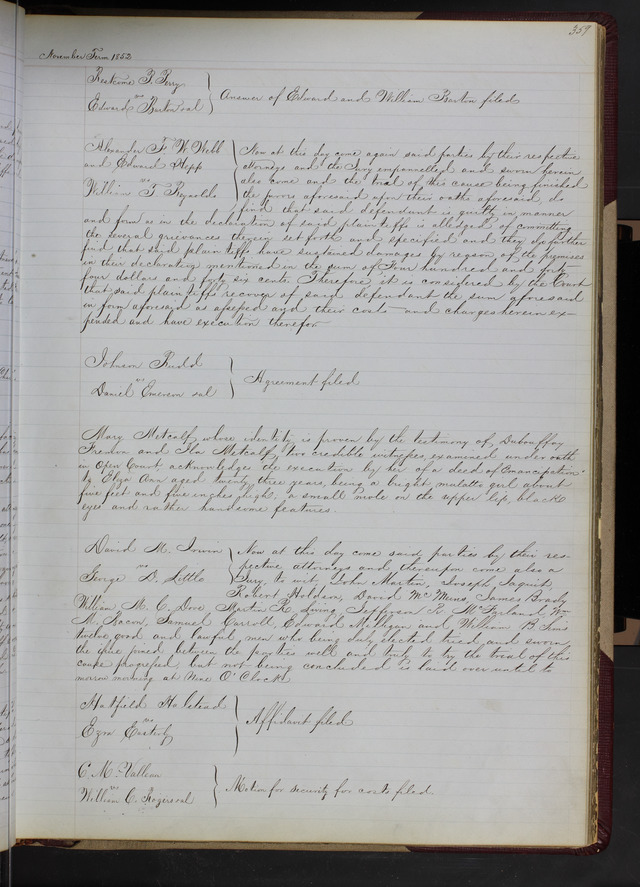 359
November Term 1852
Perry
vs
Edward Burton et al
Answer of Edward and William Burton filed
Alexander F. W. Webb
and Edward Hopp
vs
William T. Reynolds
Now at this day come again said parties by their respective
attorneys and the Jury empannelled and sworn herein
also come and the trial of this cause being finished
the jurors aforesaid upon their oaths aforesaid, do
find that said defendant is guilty in manner
and form as in the declaration of said plaintiffs is alledged of committing
the several grievances therein set forth and specified and they do further
find that said plaintiffs have sustained damages by reason of the premises
in their declaration mentioned in the sum of Four hundred and
four dollars and six cents. Therefore it is considered by the Court
that said plaintiffs recover of said defendant the sum aforesaid
in form aforesaid as assessed and their costs and charges herein ex-
pended and have execution therefor
Johnson Rudd
vs
Daniel Emerson et al
Agreement filed
Mary Metcalf, whose identity is proven by the testimony of
and Ila Metcalf, two credible witnesses, examined under oath
in Open Court acknowledges the execution by her of a deed of Emancipation
to Eliza Ann aged twenty three years, being a bright mulatto girl about
five feet and five inches high, a small mole on the upper lip, black
eyes and rather handsome features.
David M. Irwin
vs
George D. Little
Now at this day come said parties by their res-
pective attorneys and thereupon come also a
Jury, to wit, John Martin, Joseph
Robert Holden, David McMins, James Brady
William M. C. Dove, Martin R. Living, Jefferson R. McFarland, Wm
M. Bacon, Samuel Carroll, Edward Milligan and William B. Sims
twelve good and lawful men who being duly elected tried and sworn
the issue joined between the parties well and truly to try the trial of this
cause progressed, but not being concluded is laid over until to
morrow morning at Nine O'Clock
Hatfield Halstead
vs
Ezra
Affidavit filed
C. M. Valleau
vs
William C. et al
Motion for security for costs filed.